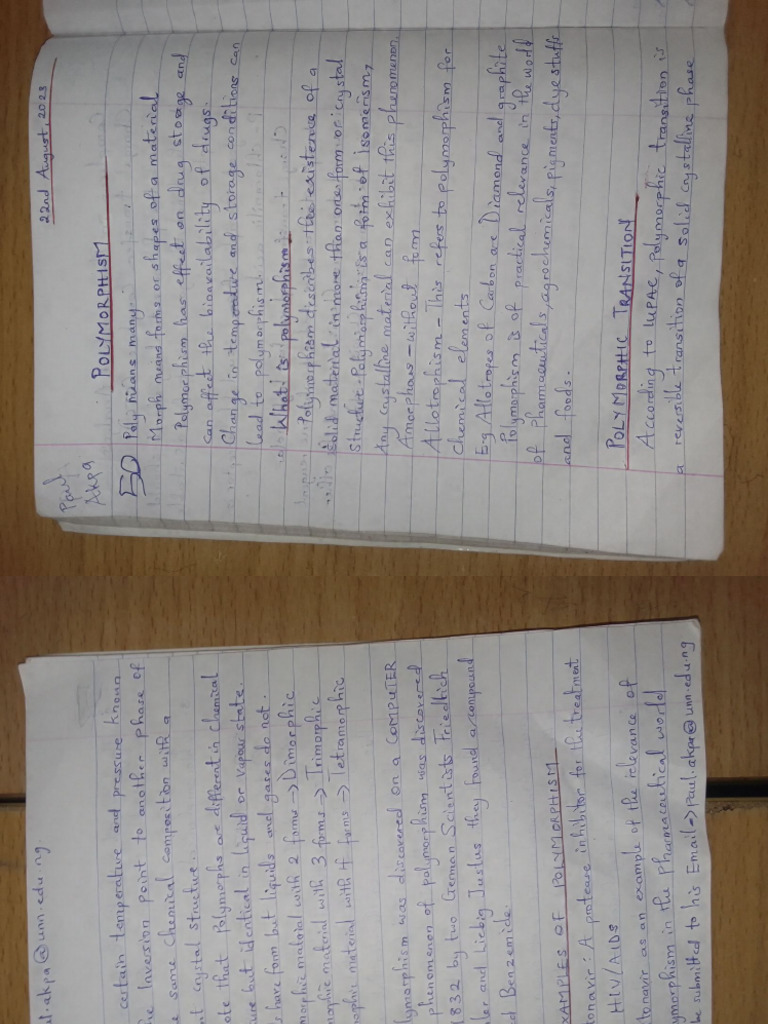 22nd August, 2023
Paul
Akpa
POLYMORPHISM
50
Poly means many.
Morph means forms or shapes of a material
Polymorphism has effect on drug storage and
can affect the bioavailability of drugs.
Change in temperature and storage conditions can
lead to polymorphism.
What is polymorphism
Polymorphism describes the existence of a
solid material in more than one form or crystal
structure. Polymorphism is a form of isomerism,
Any crystalline material can exhibit this phenomenon.
Amorphous - without form
Allotrophism - This refers to polymorphism for
chemical elements
E.g Allotropes of Carbon are Diamond and graphite
Polymorphism is of practical relevance in the world
of pharmaceuticals, agrochemicals, pigments, dyestuffs
and foods.
POLYMORPHIC TRANSITION
According to IUPAC, polymorphic transition is
a reversible transition of a solid crystalline phase
ul.akpa@unn.edu.ng
certain temperature and pressure known
the inversion point to another phase of
e same chemical composition with a
nt crystal structure.
ote that Polymorphs are different in chemical
ure but identical in liquid or vapour state.
s have form but liquids and gases do not.
morphic material with 2 forms → Dimorphic
morphic material with 3 forms → Trimorphic
morphic material with 4 forms → Tetramorphic
lymorphism was discovered on a COMPUTER
phenomenon of polymorphism was discovered
1832 by two German Scientists Friedlich
ler and Liebig Justus they found a compound
d Benzemide.
XAMPLES OF POLYMORPHISM
tonavir: A protease inhibitor for the treatment
HIV/AIDS
tonavir as an example of the relevance of
lymorphism in the pharmaceutical world
be submitted to his Email => paul.akpa@unn.edu.ng